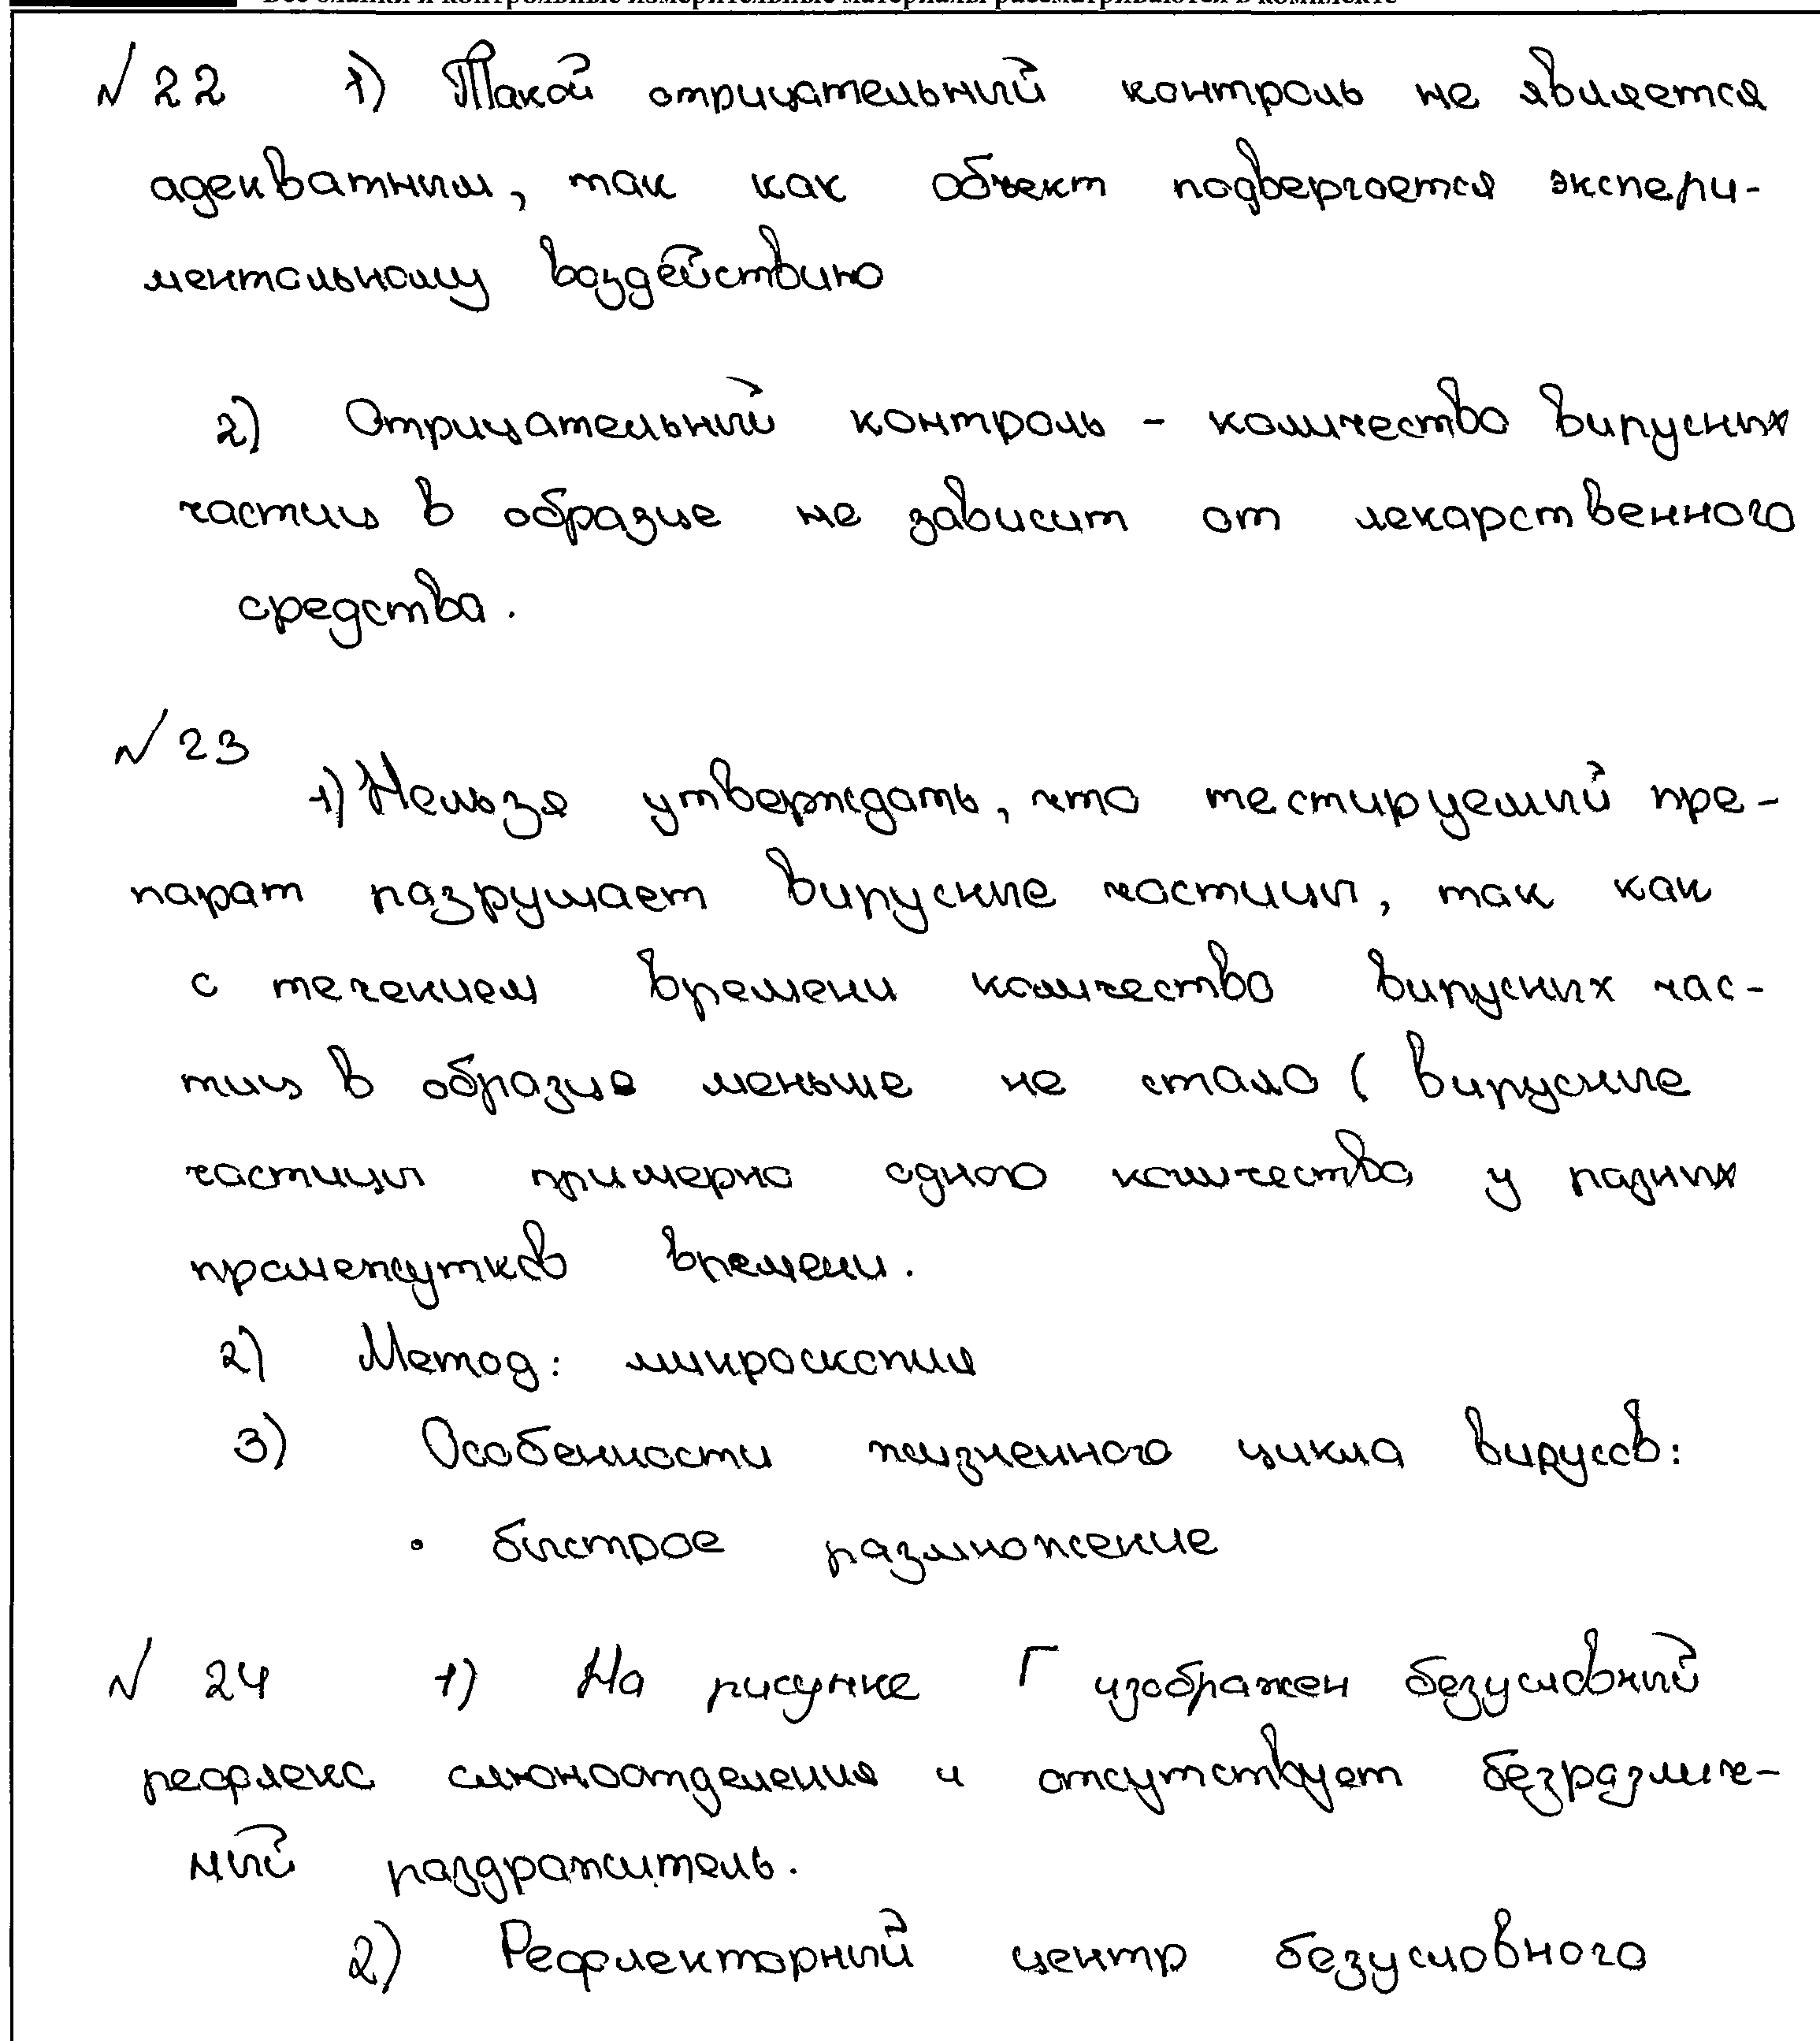 Все бланки и контрольные измерительные материалы рассматриваются в комплекте
№ 22 1) Такой отрицательный контроль не является
адекватным, так как объект подвергается экспери-
ментальному воздействию
2) Отрицательный контроль - количество вирусных
частиц в образце не зависит от лекарственного
средства.
№ 23
1) Нельзя утверждать, что тестируемый пре-
парат разрушает вирусные частицы, так как
с течением времени количество вирусных час-
тиц в образце меньше не стало ( вирусные
частицы примерно одного количества у разных
промежутков времени.
2) Метод: микроскопия
3) Особенности жизненного цикла вирусов:
• быстрое размножение
№ 24 1) На рисунке Г изображен безусловный
рефлекс слюноотделения и отсутствует безразлич-
ный раздражитель.
2) Рефлекторный центр безусловного